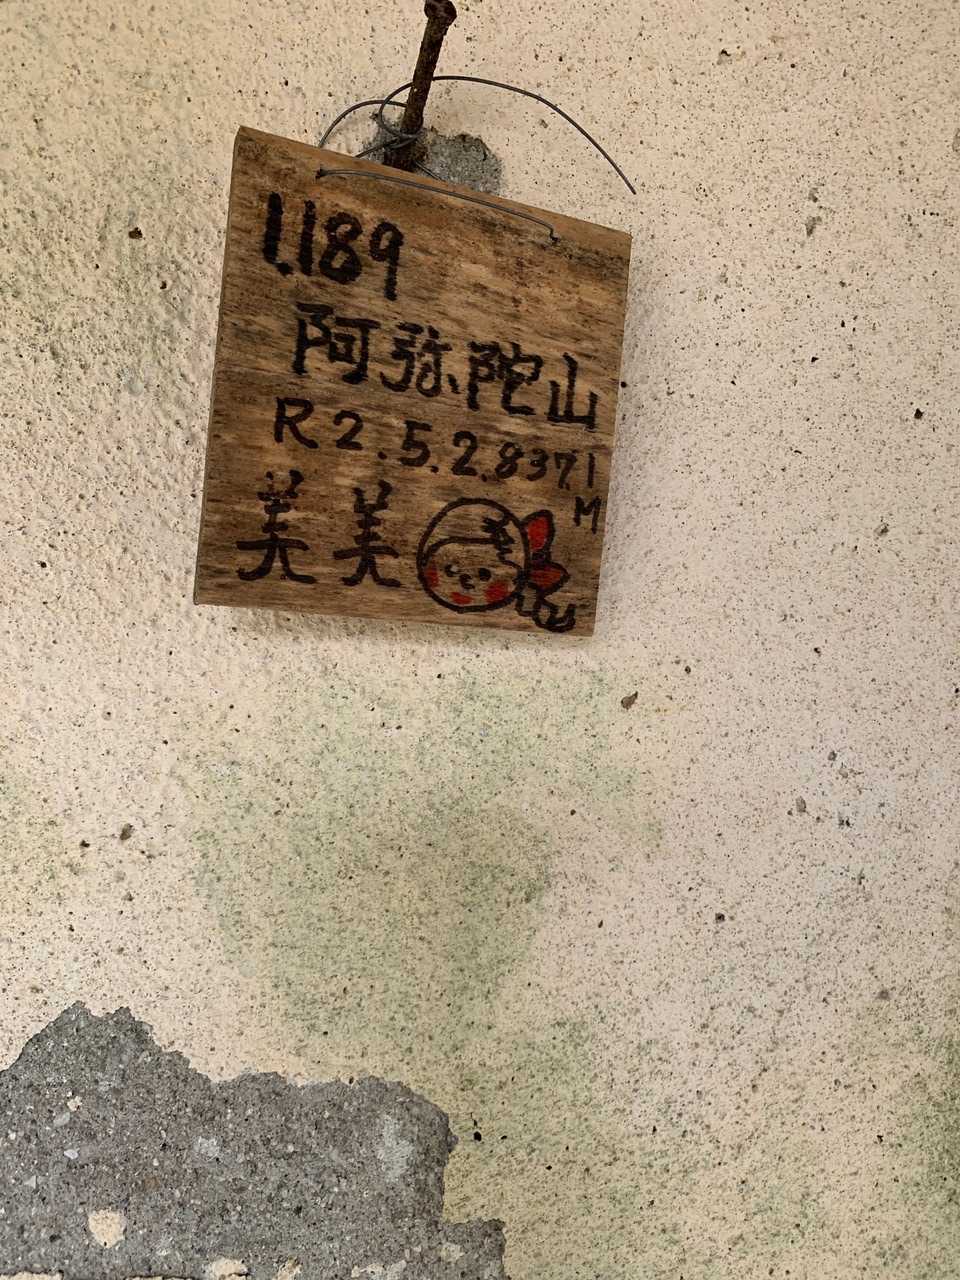 1.189
阿弥陀山
R2.5.2.837.1
M
美美